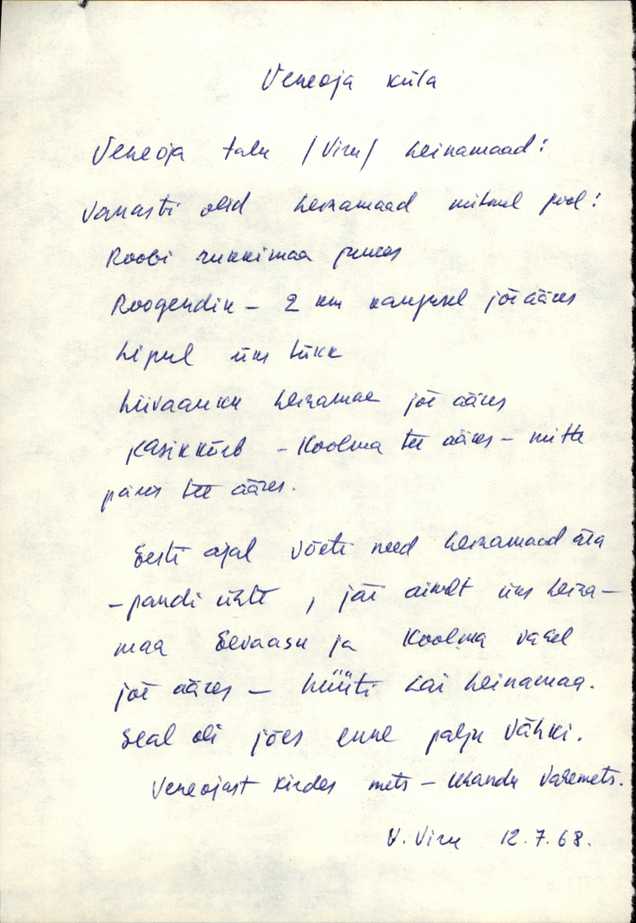 Veneoja küla
Veneoja talu /Viru/ heinamaad:
Vanasti olid heinamaad mitmel pool:
Roobi rukkimaa juures
Roogendik – 2 km kaugusel jõe ääres
Lipul üks tükk
Liivaauku heinamaa jõe ääres
Kasikkõrb – Koolma tee ääres – mitte
päris tee ääres.
Eesti ajal võeti need heinamaad ära
– pandi ühte, jäi ainult üks heina–
maa Eevaasu ja Koolma vahel
jõe ääres – hüüti Lai heinamaa.
Seal oli jões enne palju vähki.
Veneojast kirdes mets – Varemets.
V. Viru 12.7.68.